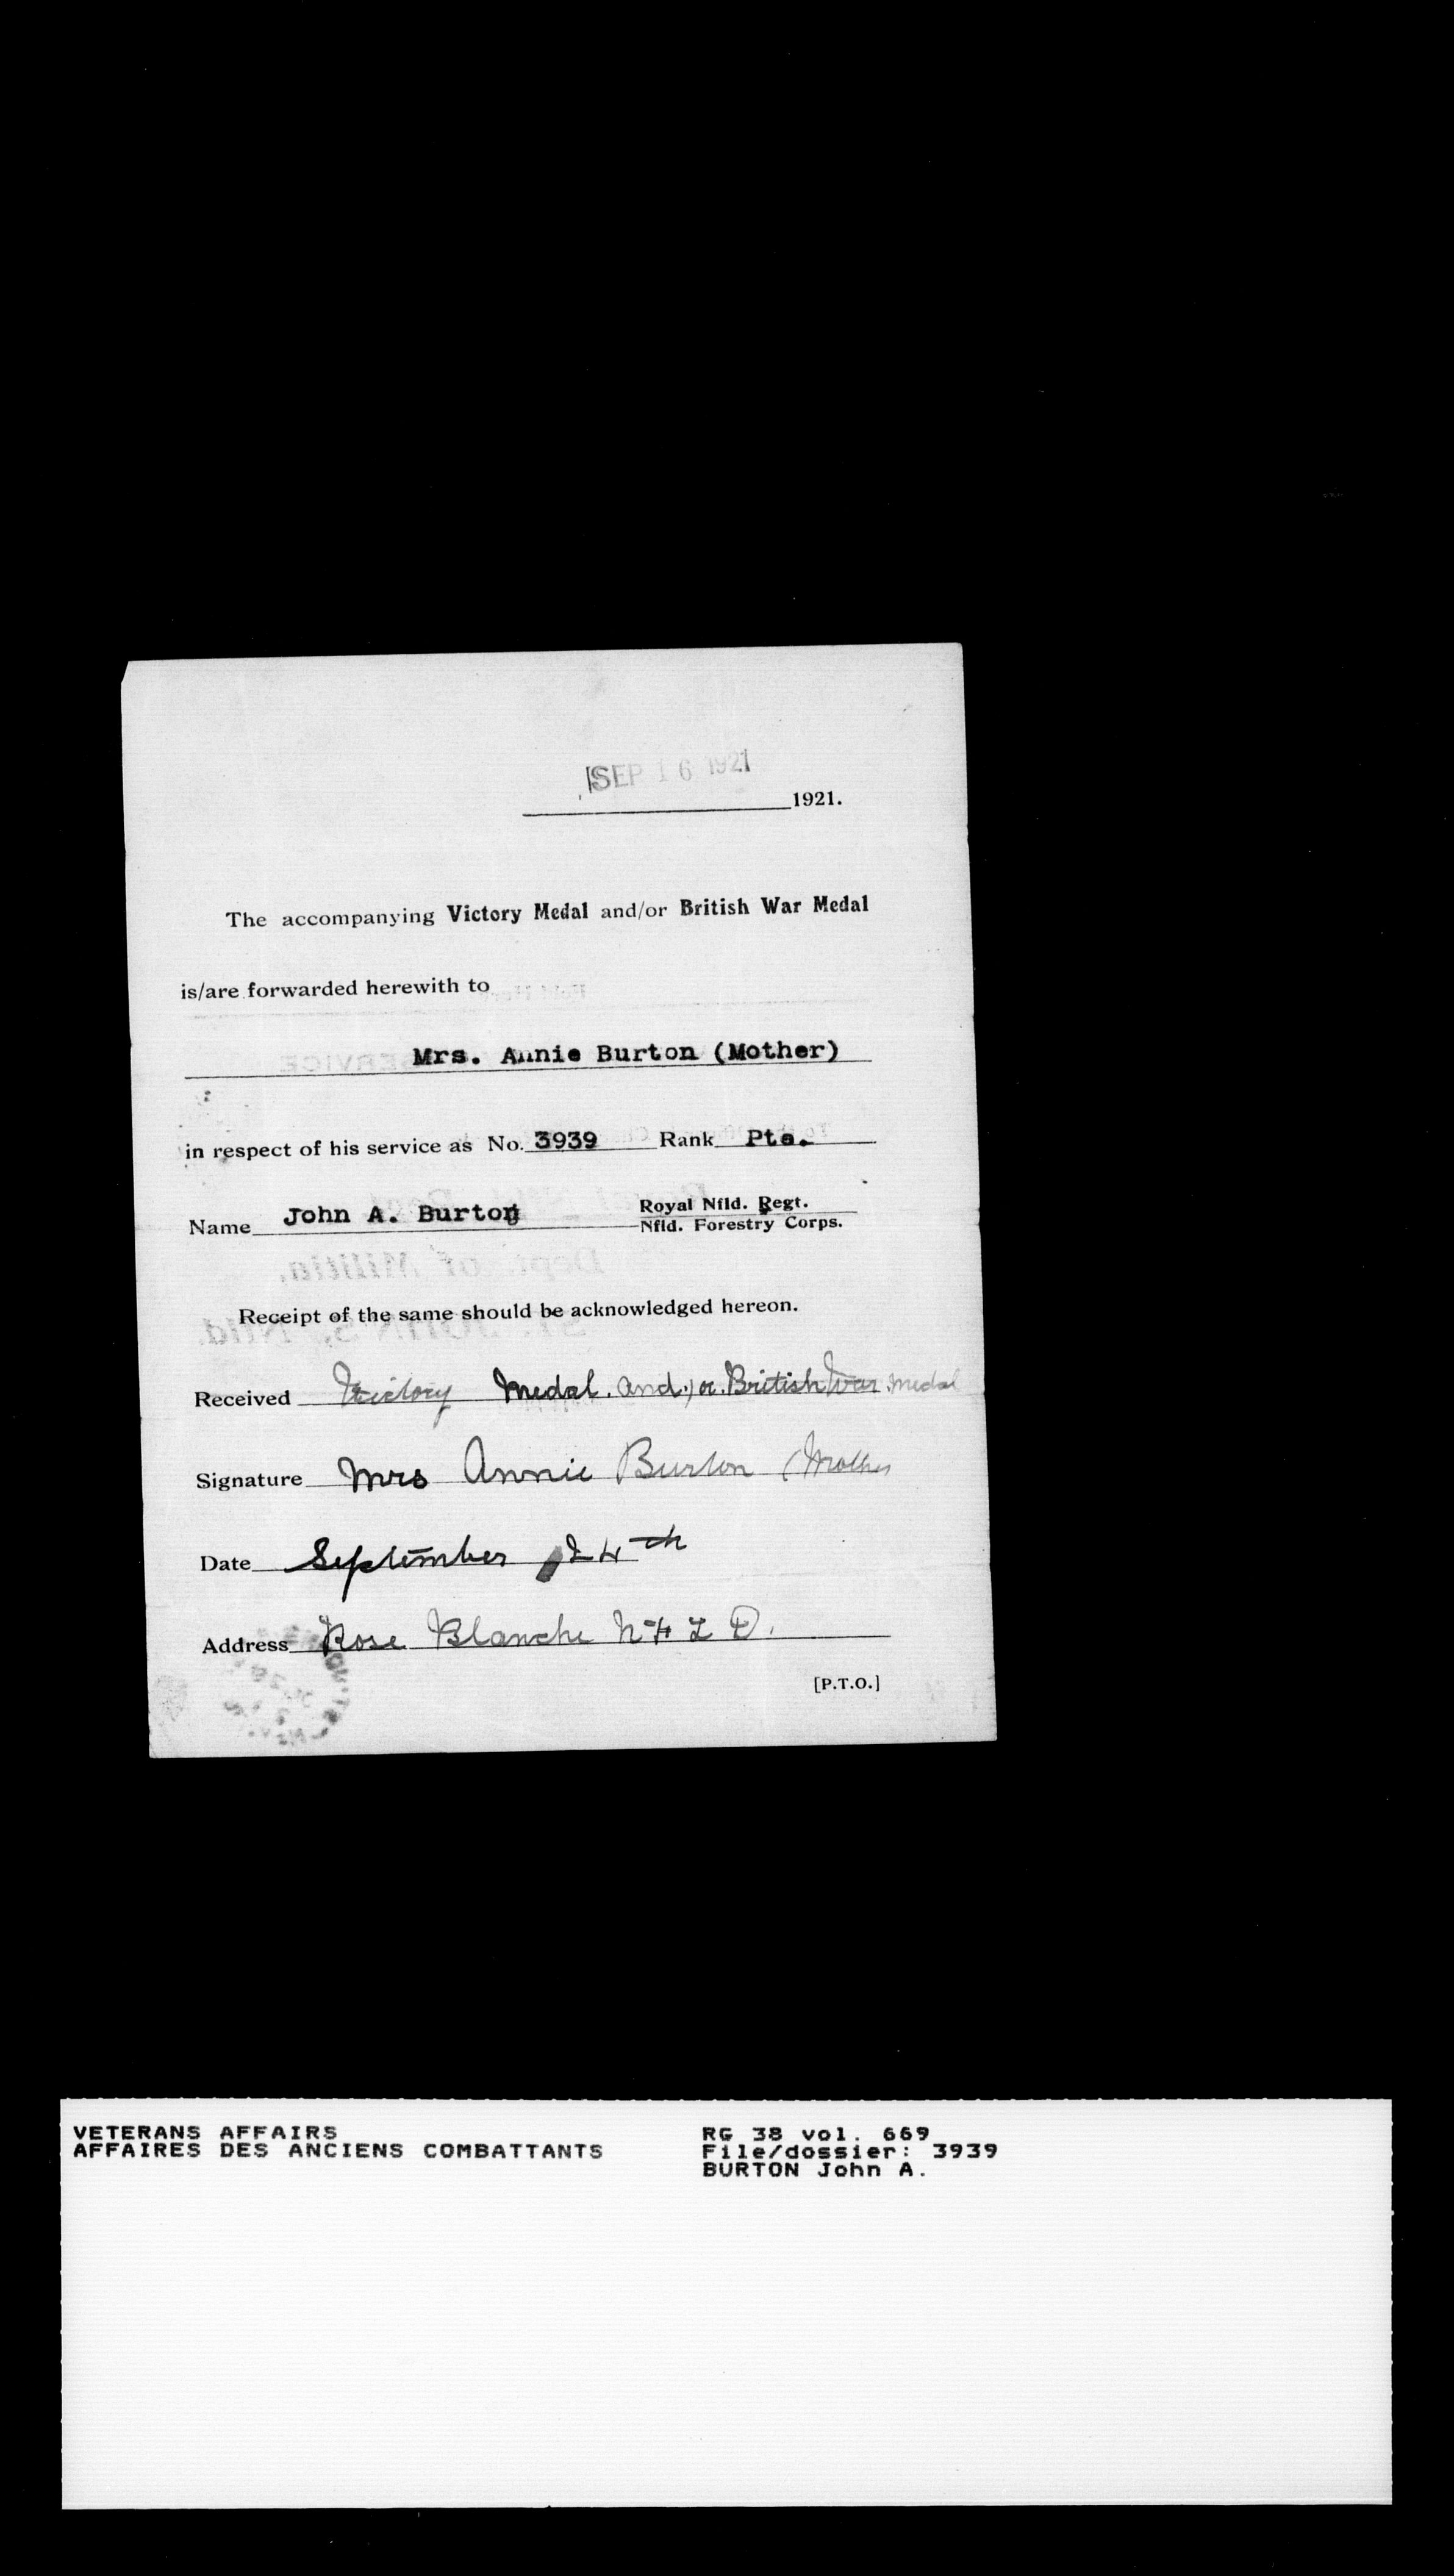 SEP 16 1921
1921.
The accompanying Victory Medal and/or British War Medal
is/are forwarded herewith to
Mrs. Annie Burton (Mother)
in respect of his service as No. 3939 Rank Pte.
Name John A. Burton Royal Nfld. Regt.
Nfld. Forestry Corps.
Receipt of the same should be acknowledged hereon.
Received Victory Medal. and/or. British War Medal
Signature Mrs Annie Burton (Mother
Date September 24th
Address Rose Blanche N F L D.
[P.T.O.]
VETERANS AFFAIRS RG 38 vol. 669
AFFAIRES DES ANCIENS COMBATTANTS File/dossier: 3939
BURTON John A.